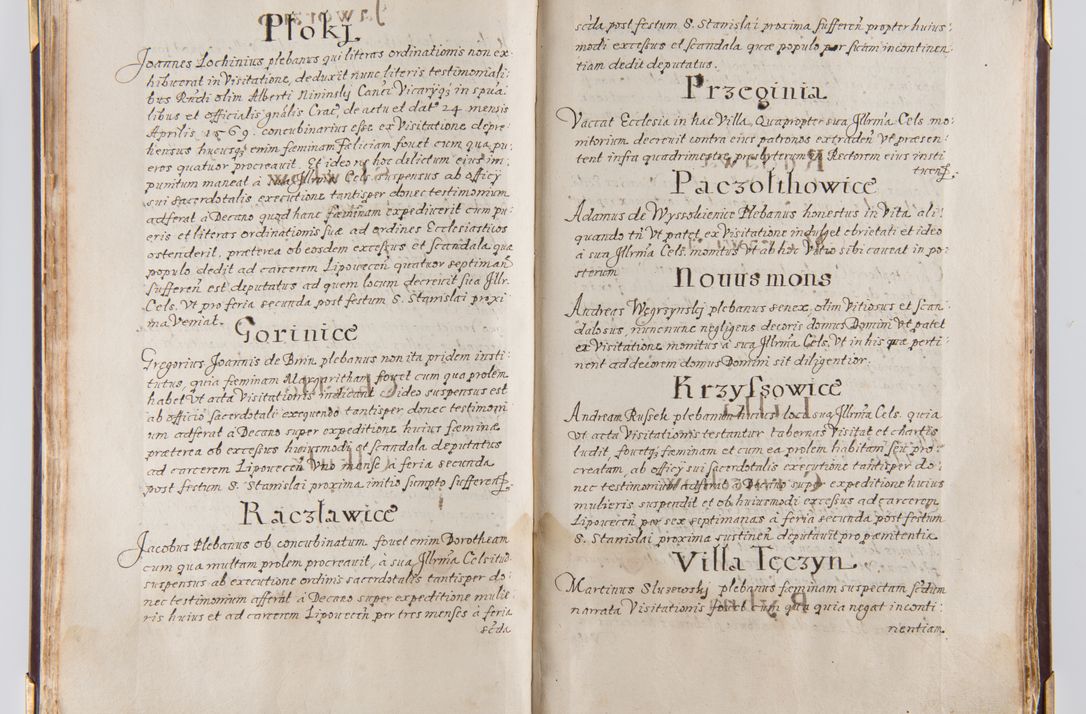 Płokj
Joannes Lochinius plebanus qui literas ordinationis non ex-
hibuerat in Visitatione, deduxit nunc literis testimoniali-
bus Rndi olim Alberti Nininskj Canci Vicaryq; in spua-
libus et officialis gnalis Crac, de actu et dat. 24 mensis
Aprilis 1569. concubinarius esse ex Visitatione depre-
hensus hucusq; enim fœminam Feliciam fouet cum qua pu-
eros quatuor procreauit. Et ideo ne hoc delictum eius im-
punitum maneat à sua Jllrma Cels. suspensus ab officy
sui sacerdotalis executione tantisper donec testimonium
adferat a Decano quod hanc fœminam expediuerit cum pu-
eris et literas ordinationis suæ ad ordines Ecclesiasticos
ostenderit. præterea ob eosdem excessus et scandala quæ
populo dedit ad carcerem Lipouecen quatuor septiman
sufferen est deputatus ad quem locum decreuit sua Jllr.
Cels. Vt pro feria secunda post festum S. Stanislai proxi-
ma Veniat.
Gorinice
Gregorius Joannis de Bnin plebanus non ita pridem insti-
tutus, quia fœminam Margaritham fouet cum qua prolem
habet Vt acta Visitationis indicant. Ideo suspensus est
ab officio sacerdotali exequendo tantisper donec testimoni
um adferat à Decano super expeditione huius fœminæ
præterea ob excessus huiusmodi et scandala deputatus
ad carcerem Lipouecen Vno mense a feria secunda
post festum S. Stanislai proxima initio sumpto sufferen.
Raczławice
Jacobus Plebanus ob concubinatum fouet enim Dorotheam
cum qua multam prolem procreauit, à sua Jllrma Celsitud
suspensus ab executione ordinis sacerdotalis tantisper do-
nec testimonium afferat à Decano super expeditione mulie-
ris huius et ad carcerem Lipouecen per tres menses à feria
scda
scda post festum S. Stanislai proxima sufferen propter huius-
modi excessus et scandala quæ populo per suam incontinen-
tiam dedit deputatus.
Przeginia
Vaccat Ecclesia in hac Villa, Quapropter sua Jllrma Cels. mo-
nitorium decreuit contra eius patronos extraden Vt præsen-
tent infra quadrimestre presbyterum in Rectorem eius insti-
tuen.
Paczolthowice
Adamus de Wysokienice Plebanus honestus in Vita ali-
quando tn Vt patet ex Visitatione indulget ebrietati et ideo
a sua Jllrma Cels. monitus Vt ab hoc Vitio sibi caueat in po-
sterum
Nouus mons
Andreas Węgrzynskj plebanus senex, olim Vitiosus et scan-
dalosus, nunc nunc negligens decoris domus Domini Vt patet
ex Visitatione monitus à sua Jllrma Cels. Vt in his quæ perti-
nent ad decorem domus Domini sit diligentior.
Krzyssowice
Andream Russek plebanum huius loci sua Jllrma Cels. quia
Vt acta Visitationis testantur tabernas Visitat et chartis
ludit, fouetq; fœminam et cum ea prolem habitam seu pro-
creatam, ab officy sui sacerdotalis executione tantisper do-
nec testimonium adferat à Decano super expeditione huius
mulieris suspendit et ob huiusmodi excessus ad carcerem
Lipouecen per sex septimanas à feria secunda post festum
S. Stanislai proxima sustinen deputauit pro pœnitentia
Villa Tęczyn
Martinus Sluzewskj plebanus fœminam suspectam secdum
narrata Visitationis fouet cum qua quia negat inconti-
nentiam